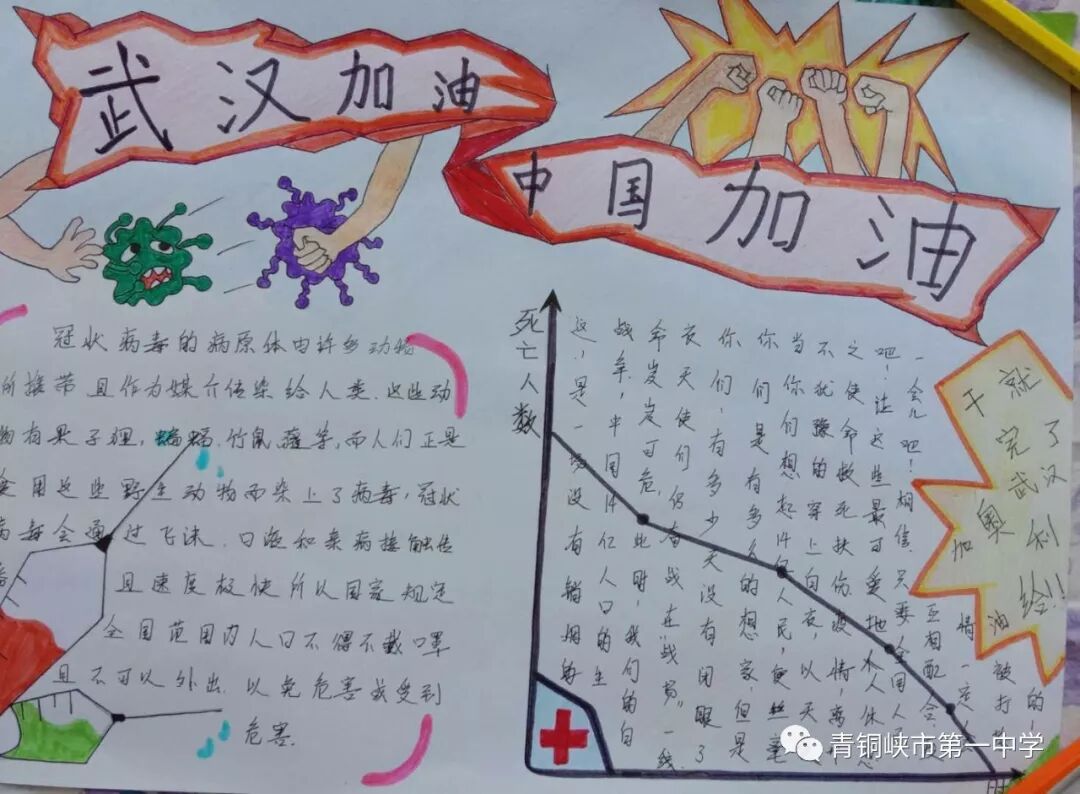 武汉加油
中国加油
冠状病毒的病原体由许多动物
所携带且作为媒介传染给人类.这些动
物有果子狸,蝙蝠.竹鼠,獾等,而人们正是
食用这些野生动物而染上了病毒,冠状
病毒会通过飞沫.口液和亲病接触传
且速度极快所以国家规定
全国范围内人口不得不戴口罩
且不可以外出.以免危害或受到
危害.
死亡人数
这,是一场没有销烟的
战争,中国14亿人口的生
命岌岌可危,此时,我们的白
衣天使们仍有战在"战场"一线.
你们,有多少天没有闭眼了
你们是有多久的想家,但是
当你们想起14亿人民,便丝毫
不犹豫的穿上白衣,以天
之使命救死扶伤,疫情,离
吧!让这些最可爱地人休息
一会儿吧!相信,只要全国人
互相配合,
情一定
被打
的
就
干完了
武汉
加油
奥利给!!
青铜峡市第一中学